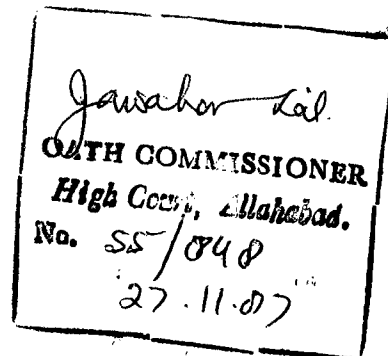 Jawahar Lal.
OATH COMMISSIONER
High Court, Allahabad.
No. 55/848
27.11.87